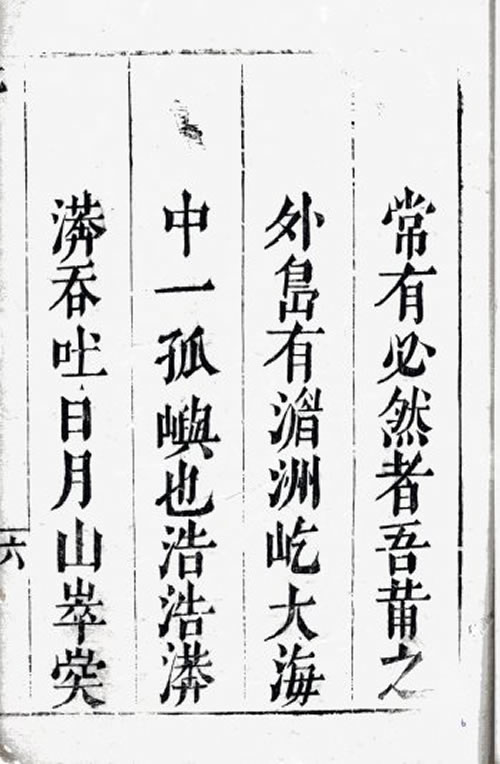 常有必然者吾莆之
外島有湄洲屹大海
中一孤嶼也浩浩漭
漭吞吐日月山崒
六